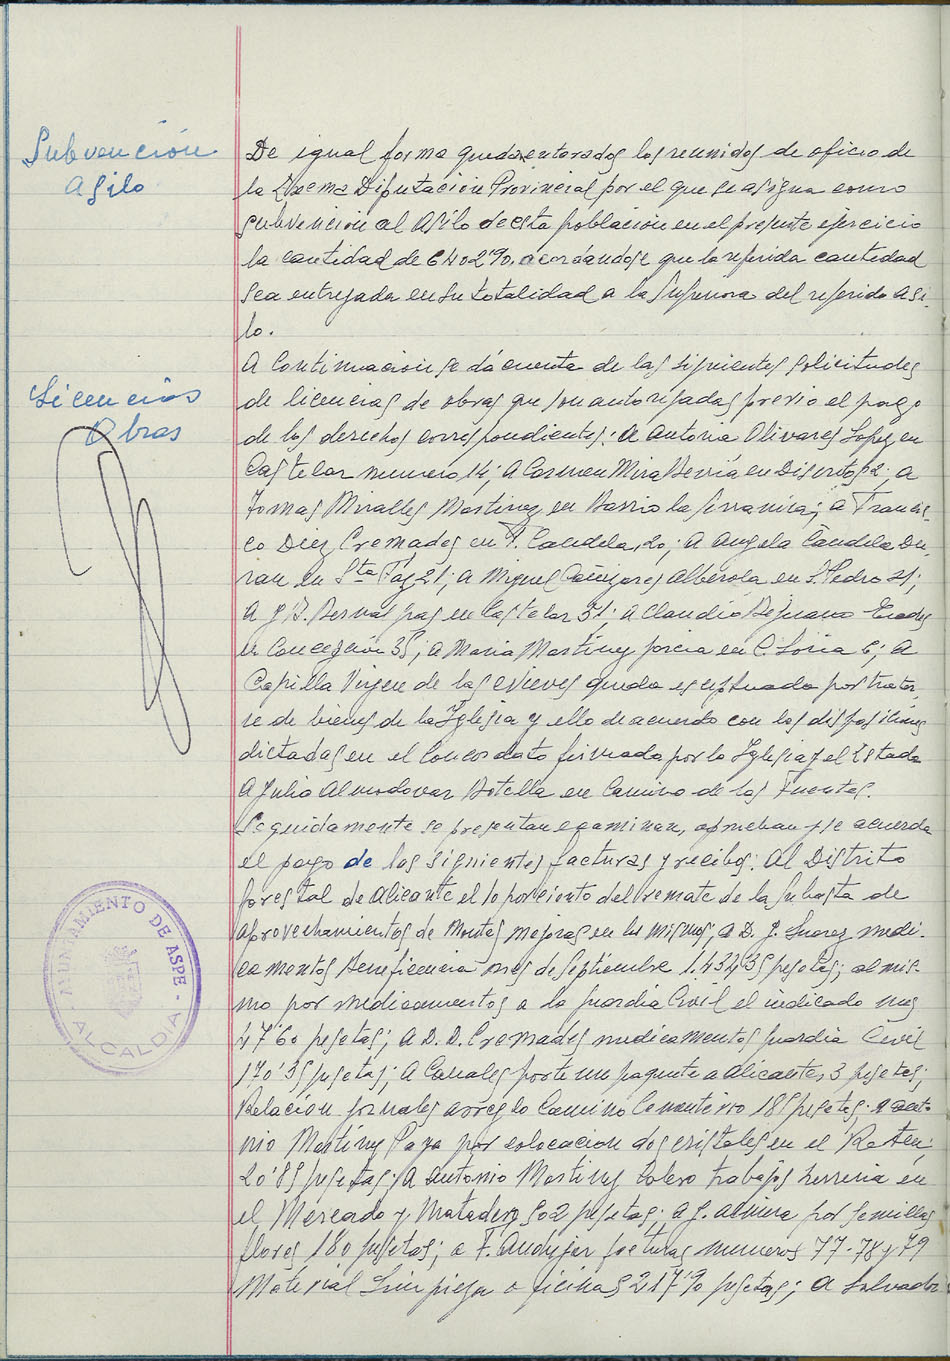 Subvención
Asilo
De igual forma quedan enterados los reunidos de oficio de
la Excma Diputación Provincial por el que se asigna como
subvención al Asilo de esta población en el presente ejercicio
la cantidad de 6402'90. acordándose que la referida cantidad
sea entregada en su totalidad a la Superiora del referido Asi-
lo.
Licencias
Obras
A continuación se dá cuenta de las siguientes solicitudes
de licencias de obras que son autorizadas previo el pago
de los derechos correspondientes: A Antonia Olivares Lopez en
Castelar numero 14; A Carmen Mira en Disentos 2; a
Tomas Miralles Martinez en Barrio la Serranica; a Francis-
co Diez Cremades en P. Candela, 20; A Angela Candela Du-
ran en Sta Faz 21; A Miguel Cañizares Alberola en S. Pedro 21;
A J. B. Bernal en Castelar 31; a Claudio Bejarano
en Concepción 35; a Maria Martinez en C. Soria 6; A
Capilla Virgen de las Nieves queda exceptuada por tratar-
se de bienes de la Iglesia y ello de acuerdo con las disposiciones
dictadas en el Concordato firmado por la Iglesia y el Estado
A Julio Almodovar Botella en Camino de las Fuentes.
Seguidamente se presentan examinan, aprueban y se acuerda
el pago de las siguientes facturas y recibos: Al Distrito
forestal de Alicante el 10 por ciento del remate de la subasta de
aprovechamientos de Montes mejoras en los mismos, a D. J. Suarez medi-
camentos Beneficencia mes de Septiembre 1.432'35 pesetas; al mis-
mo por medicamentos a la Guardia Civil el indicado mes
47'60 pesetas; A D. D. Cremades medicamentos guardia Civil
170'35 pesetas; A Canales porte un paquete a Alicante, 3 pesetas;
Relación jornales arreglo Camino Cementerio 185 pesetas; A Anto-
nio Martinez Paya por colocación dos cristales en el Reten,
20'85 pesetas; A Antonio Martinez trabajos herreria en
el Mercado y Matadero 502 pesetas; a J. Almira por semillas
flores 180 pesetas; a F. Andujar facturas numeros 77-78 y 79
Material Limpieza oficinas 217'90 pesetas; A Salvador
AYUNTAMIENTO DE ASPE
- ALCALDIA -